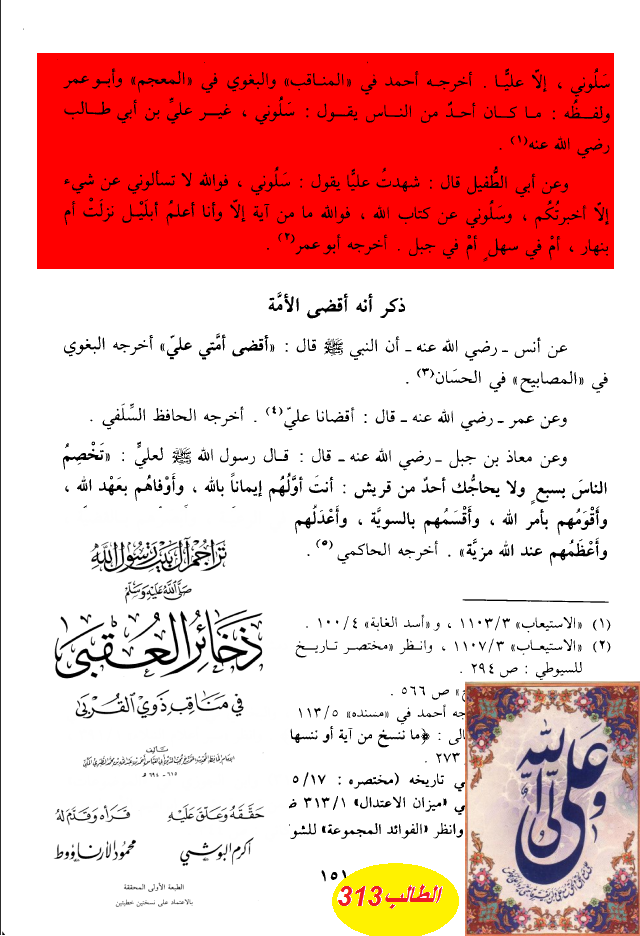 سَلُوني ، إلّا عليًّا . أخرجه أحمد في «المناقب» والبغوي في «المعجم» وأبو عمر
ولفظُه : ما كان أحدٌ من الناس يقول : سَلُوني ، غير عليِّ بن أبي طالب
رضي الله عنه(١) .
وعن أبي الطُّفيل قال : شهدتُ عليًّا يقول : سَلُوني ، فوالله لا تسألوني عن شيء
إلّا أخبرتُكُم ، وسَلُوني عن كتاب الله ، فوالله ما من آية إلّا وأنا أعلمُ أبلَيْل نزلَتْ أم
بنهار ، أمْ في سهلٍ أمْ في جبل . أخرجه أبو عمر(٢) .
ذكر أنه أقضى الأمَّة
عن أنس ـ رضي الله عنه ـ أن النبي ﷺ قال : «أقضى أمَّتي عليّ» أخرجه البغوي
في «المصابيح» في الحسَان(٣) .
وعن عمر ـ رضي الله عنه ـ قال : أقضانا عليّ(٤) . أخرجه الحافظ السِّلَفي .
وعن معاذ بن جبل ـ رضي الله عنه ـ قال : قال رسول الله ﷺ لعليٍّ : «تَخْصِمُ
الناسَ بسبعٍ ولا يحاجُّك أحدٌ من قريش : أنتَ أوَّلُهُم إيماناً بالله ، وَأَوْفاهُم بعَهْد الله ،
وأَقْوَمُهم بأمر الله ، وأَقْسَمُهم بالسويَّة ، وأَعْدَلُهم
وأَعْظَمُهم عند الله مزيَّة» . أخرجه الحاكمي(٥) .
تراجم آل بيت رسول الله
صلى الله عليه وسلم
ذخائر العقبى
في مناقب ذوي القربى
تأليف
٦١٥ - ٦٩٤ هـ
حققه وعلق عليه
قرأه وقدم له
أكرم البوشي
محمود الأرناؤوط
الطبعة الأولى المحققة
بالاعتماد على نسختين خطيتين
(١) «الاستيعاب» ١١٠٣/٣ ، و«أسد الغابة» ١٠٠/٤ .
(٢) «الاستيعاب» ١١٠٧/٣ ، وانظر «مختصر تاريخ
للسيوطي : ص ٢٩٤ .
ص ٥٦٦ .
جه أحمد في «مسنده» ١١٣/٥
الى : ﴿ما ننسخ من آية أو ننسها
٢٧٣ .
ي تاريخه (مختصره : ٥/١٧
ي «ميزان الاعتدال» ٣١٣/١
وانظر «الفوائد المجموعة» للشوك
١٥١
الطالب 313
علي ولي الله